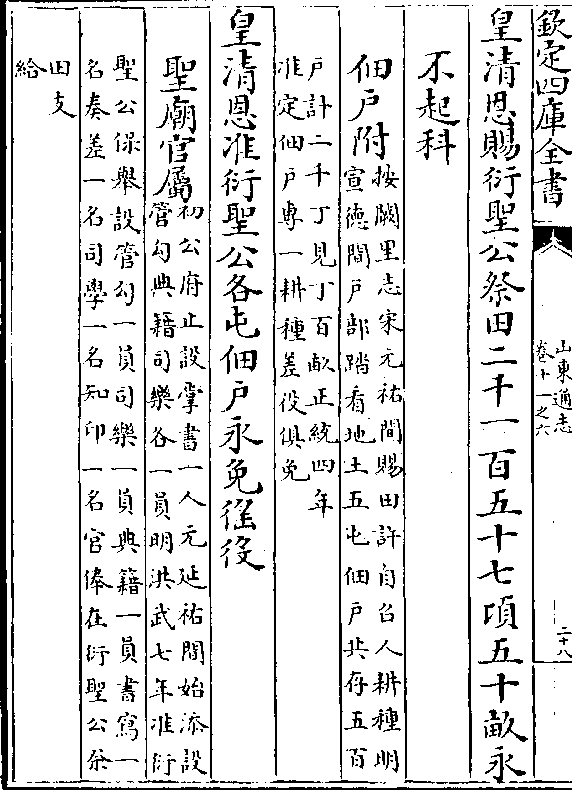 欽定四庫全書
山東通志
卷十一之六
二十八
皇清恩賜衍聖公祭田二千一百五十七頃五十畝永
不起科
佃戶附
按闕里志宋元祐間賜田許自召人耕種明
宣德間戶部踏看地土五屯佃戶共存五百
戶計二千丁見丁百畝正統四年
准定佃戶專一耕種差役俱免
皇清恩准衍聖公各屯佃戶永免徭役
聖廟官屬
初公府止設掌書一人元延祐間始添設
管勾典籍司樂各一員明洪武七年准衍
聖公保舉設管勾一員司樂一員典籍一員書寫一
名奏差一名司學一名知印一名官俸在衍聖公祭
田支
給